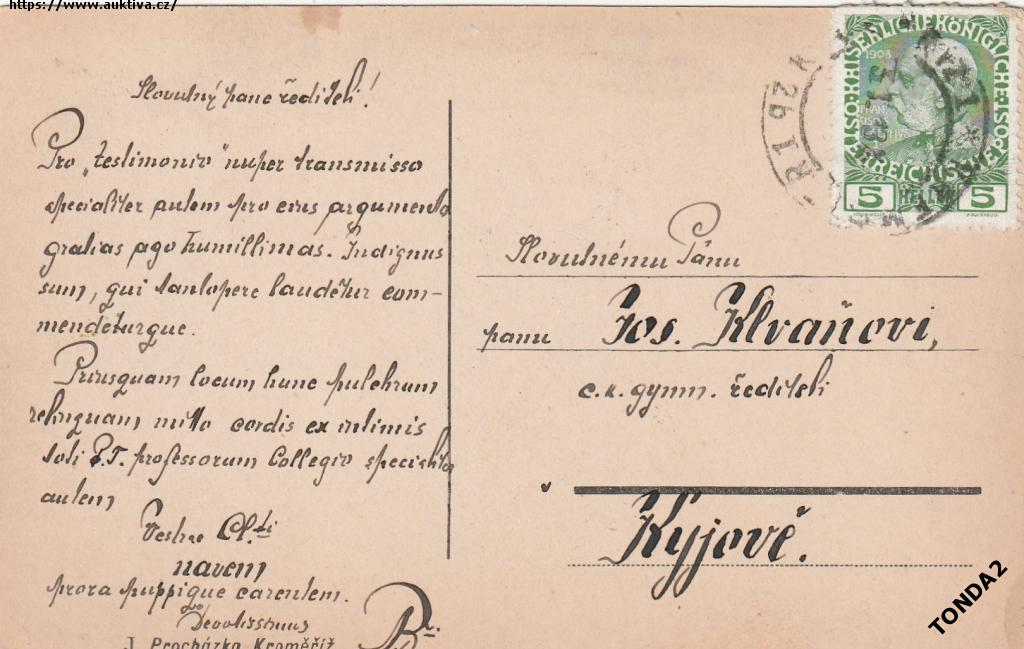 https://www.auktiva.cz/
Slovutný pane řediteli!
Pro „testimonio" nuper transmisso
specialiter autem pro eius argumento
gratias ago humillimas. Indignus
sum, qui tantopere laudetur com-
mendeturque.
Priusquam locum hunc pulchrum
relinquam mitto cordis ex intimis
toti P.T. professorum Collegio specialiter
autem
Vestrae Cl.ti
navem
prora puppique carentem.
Devotissimus
J. Procházka Kroměříž
KAISERLICHE KÖNIGLICHE
ÖSTERREICHISCHE POST
1908
5 HELLER 5
Slovutnému Pánu
panu Jos. Klvaňovi,
c.k. gymn. řediteli
Kyjově.
TONDA2